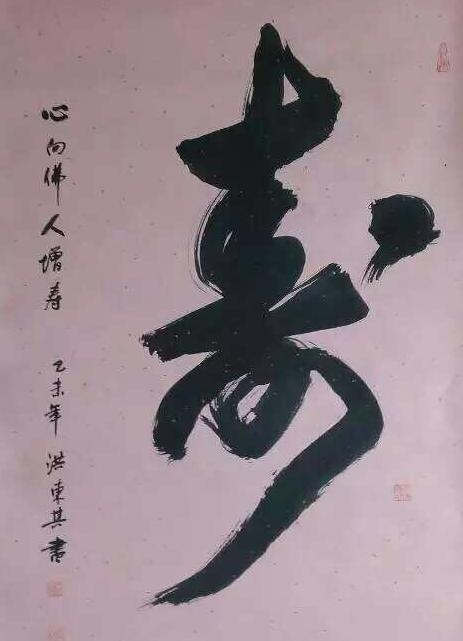 寿
心向佛人增寿
乙未年 洪东其书